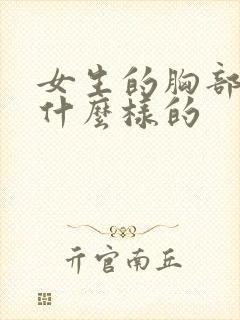 女生的胸部
什麼樣的
亓官南丘